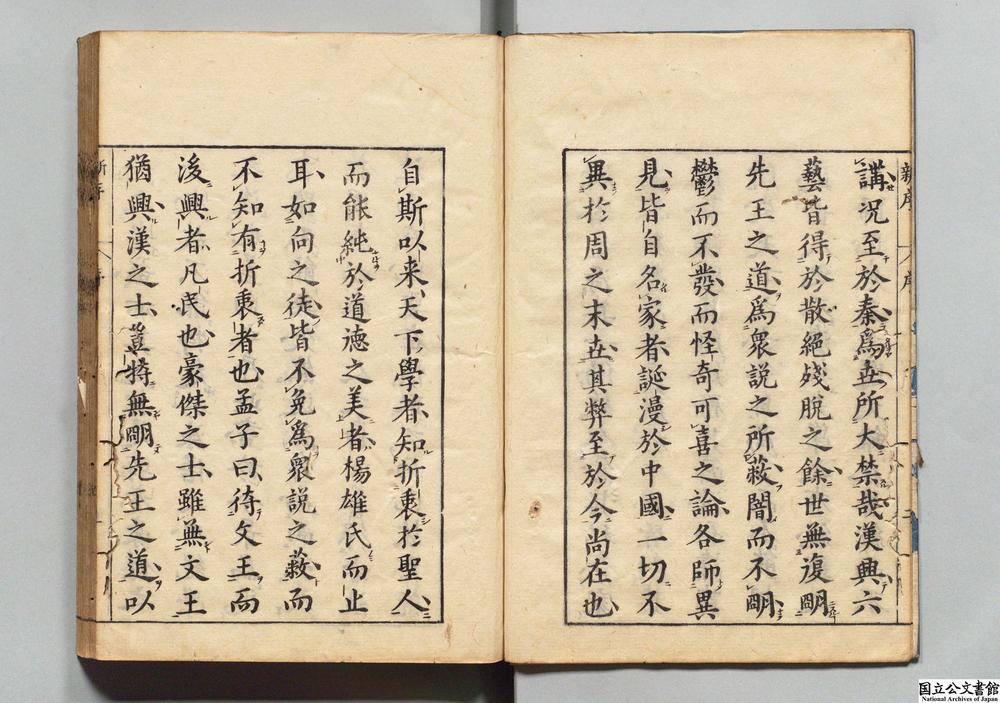 新序
序
二
講况至於秦爲卋所大禁哉漢興六
藝皆得於散絕殘脫之餘世無復朙
先王之道爲衆説之所蔽闇而不朙
鬱而不發而怪奇可喜之論各師異
見皆自名家者誕漫於中國一切不
異於周之末卋其弊至於今尚在也
自斯以来天下學者知折衷於聖人
而能純於道德之美者楊雄氏而止
耳如向之徒皆不免爲衆説之蔽而
不知有折衷者也孟子曰待文王而
後興者凡民也豪傑之士雖無文王
猶興漢之士豈特無朙先王之道以
国立公文書館
National Archives of Japan